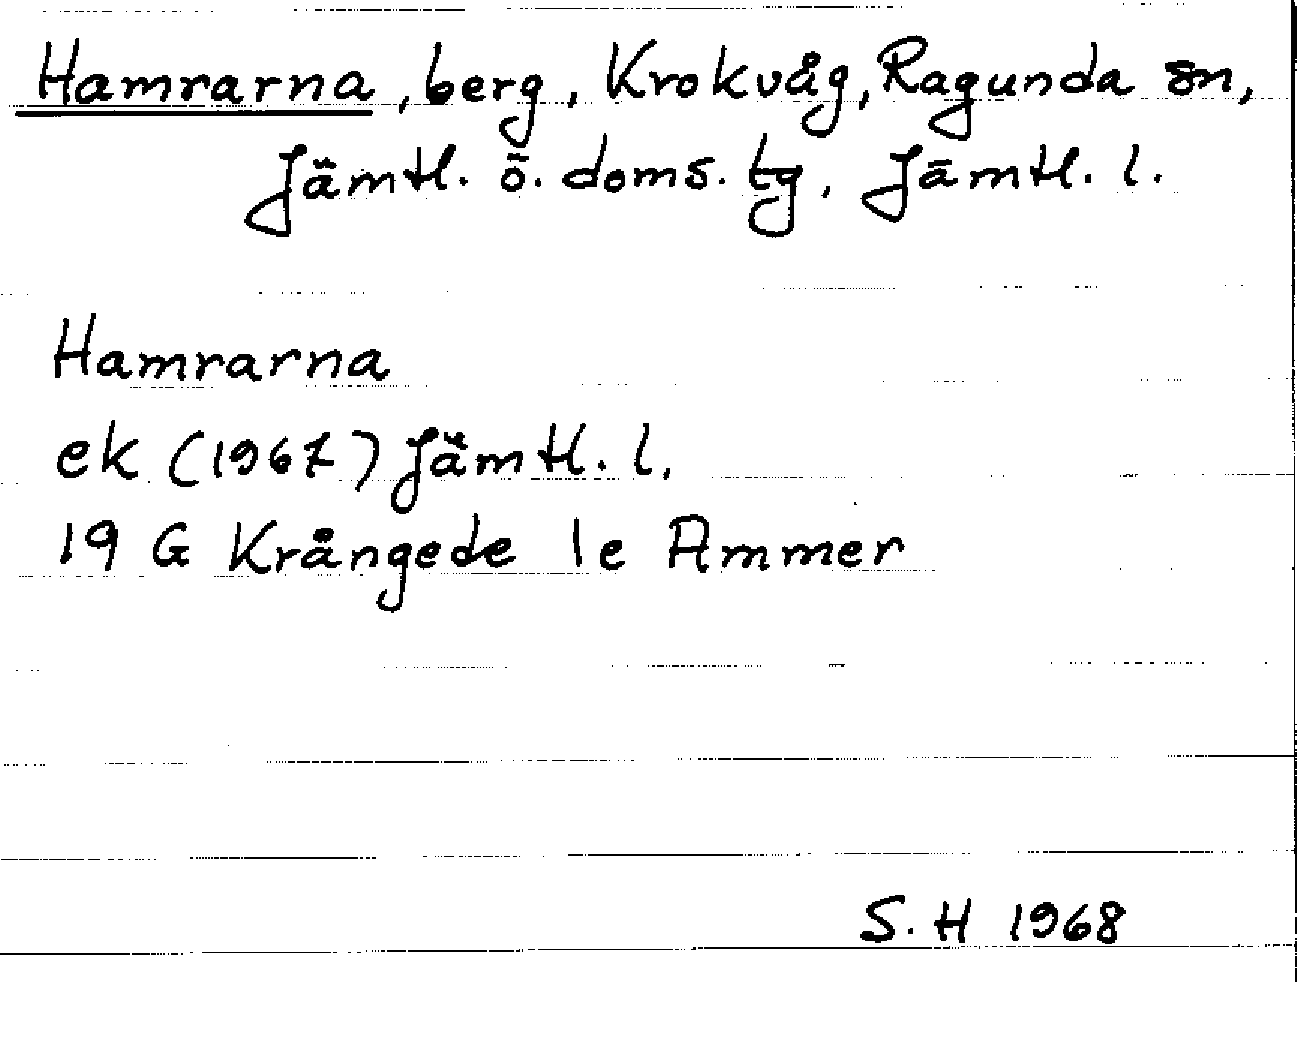 Hamrarna, berg, Krokvåg, Ragunda sn,
Jämtl. ö. doms. tg, Jämtl. l.
Hamrarna
ek (1967) Jämtl. l.
19 G Krångede 1e Ammer
S. H 1968